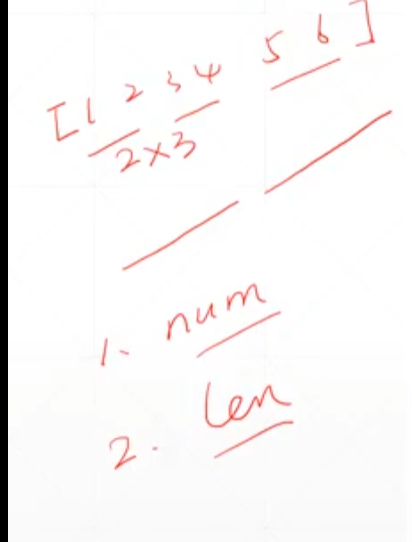 [1 2 3 4 5 6]
2x3
1. num
2. len